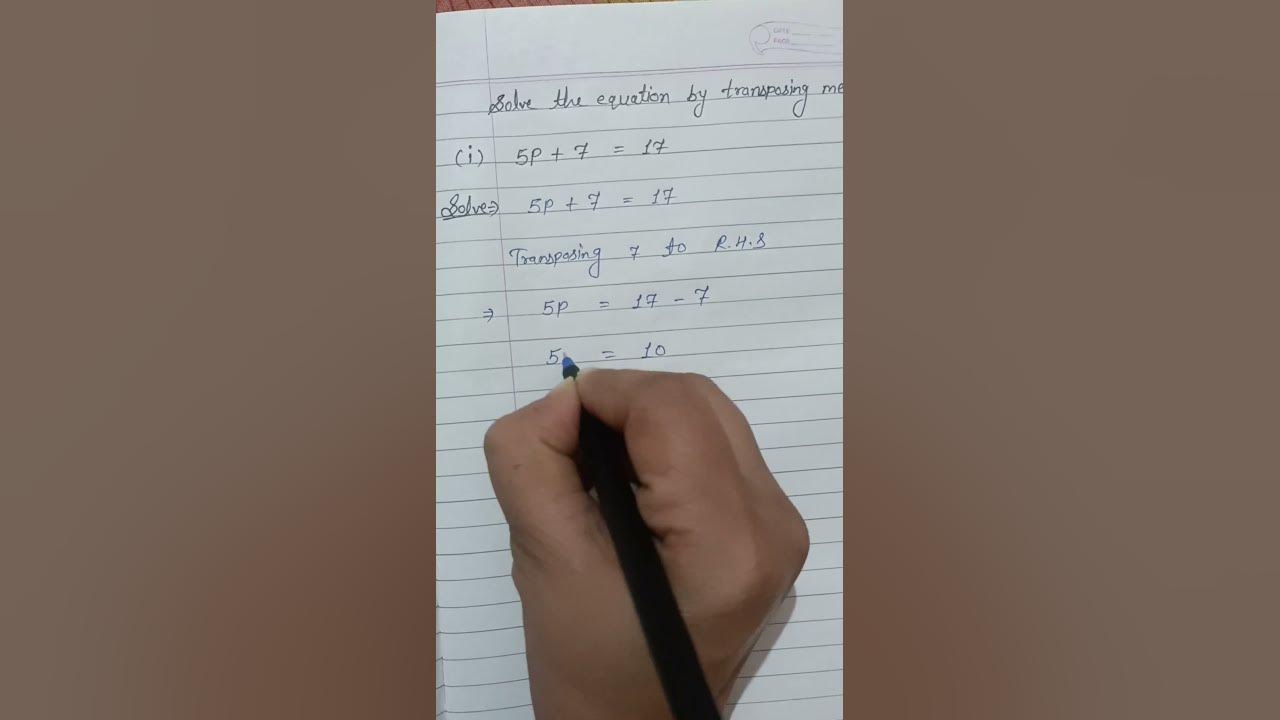 DATE
PAGE
Solve the equation by transposing me
(i) 5P + 7 = 17
Solve⇒ 5P + 7 = 17
Transposing 7 to R.H.S
⇒ 5P = 17 - 7
5 = 10